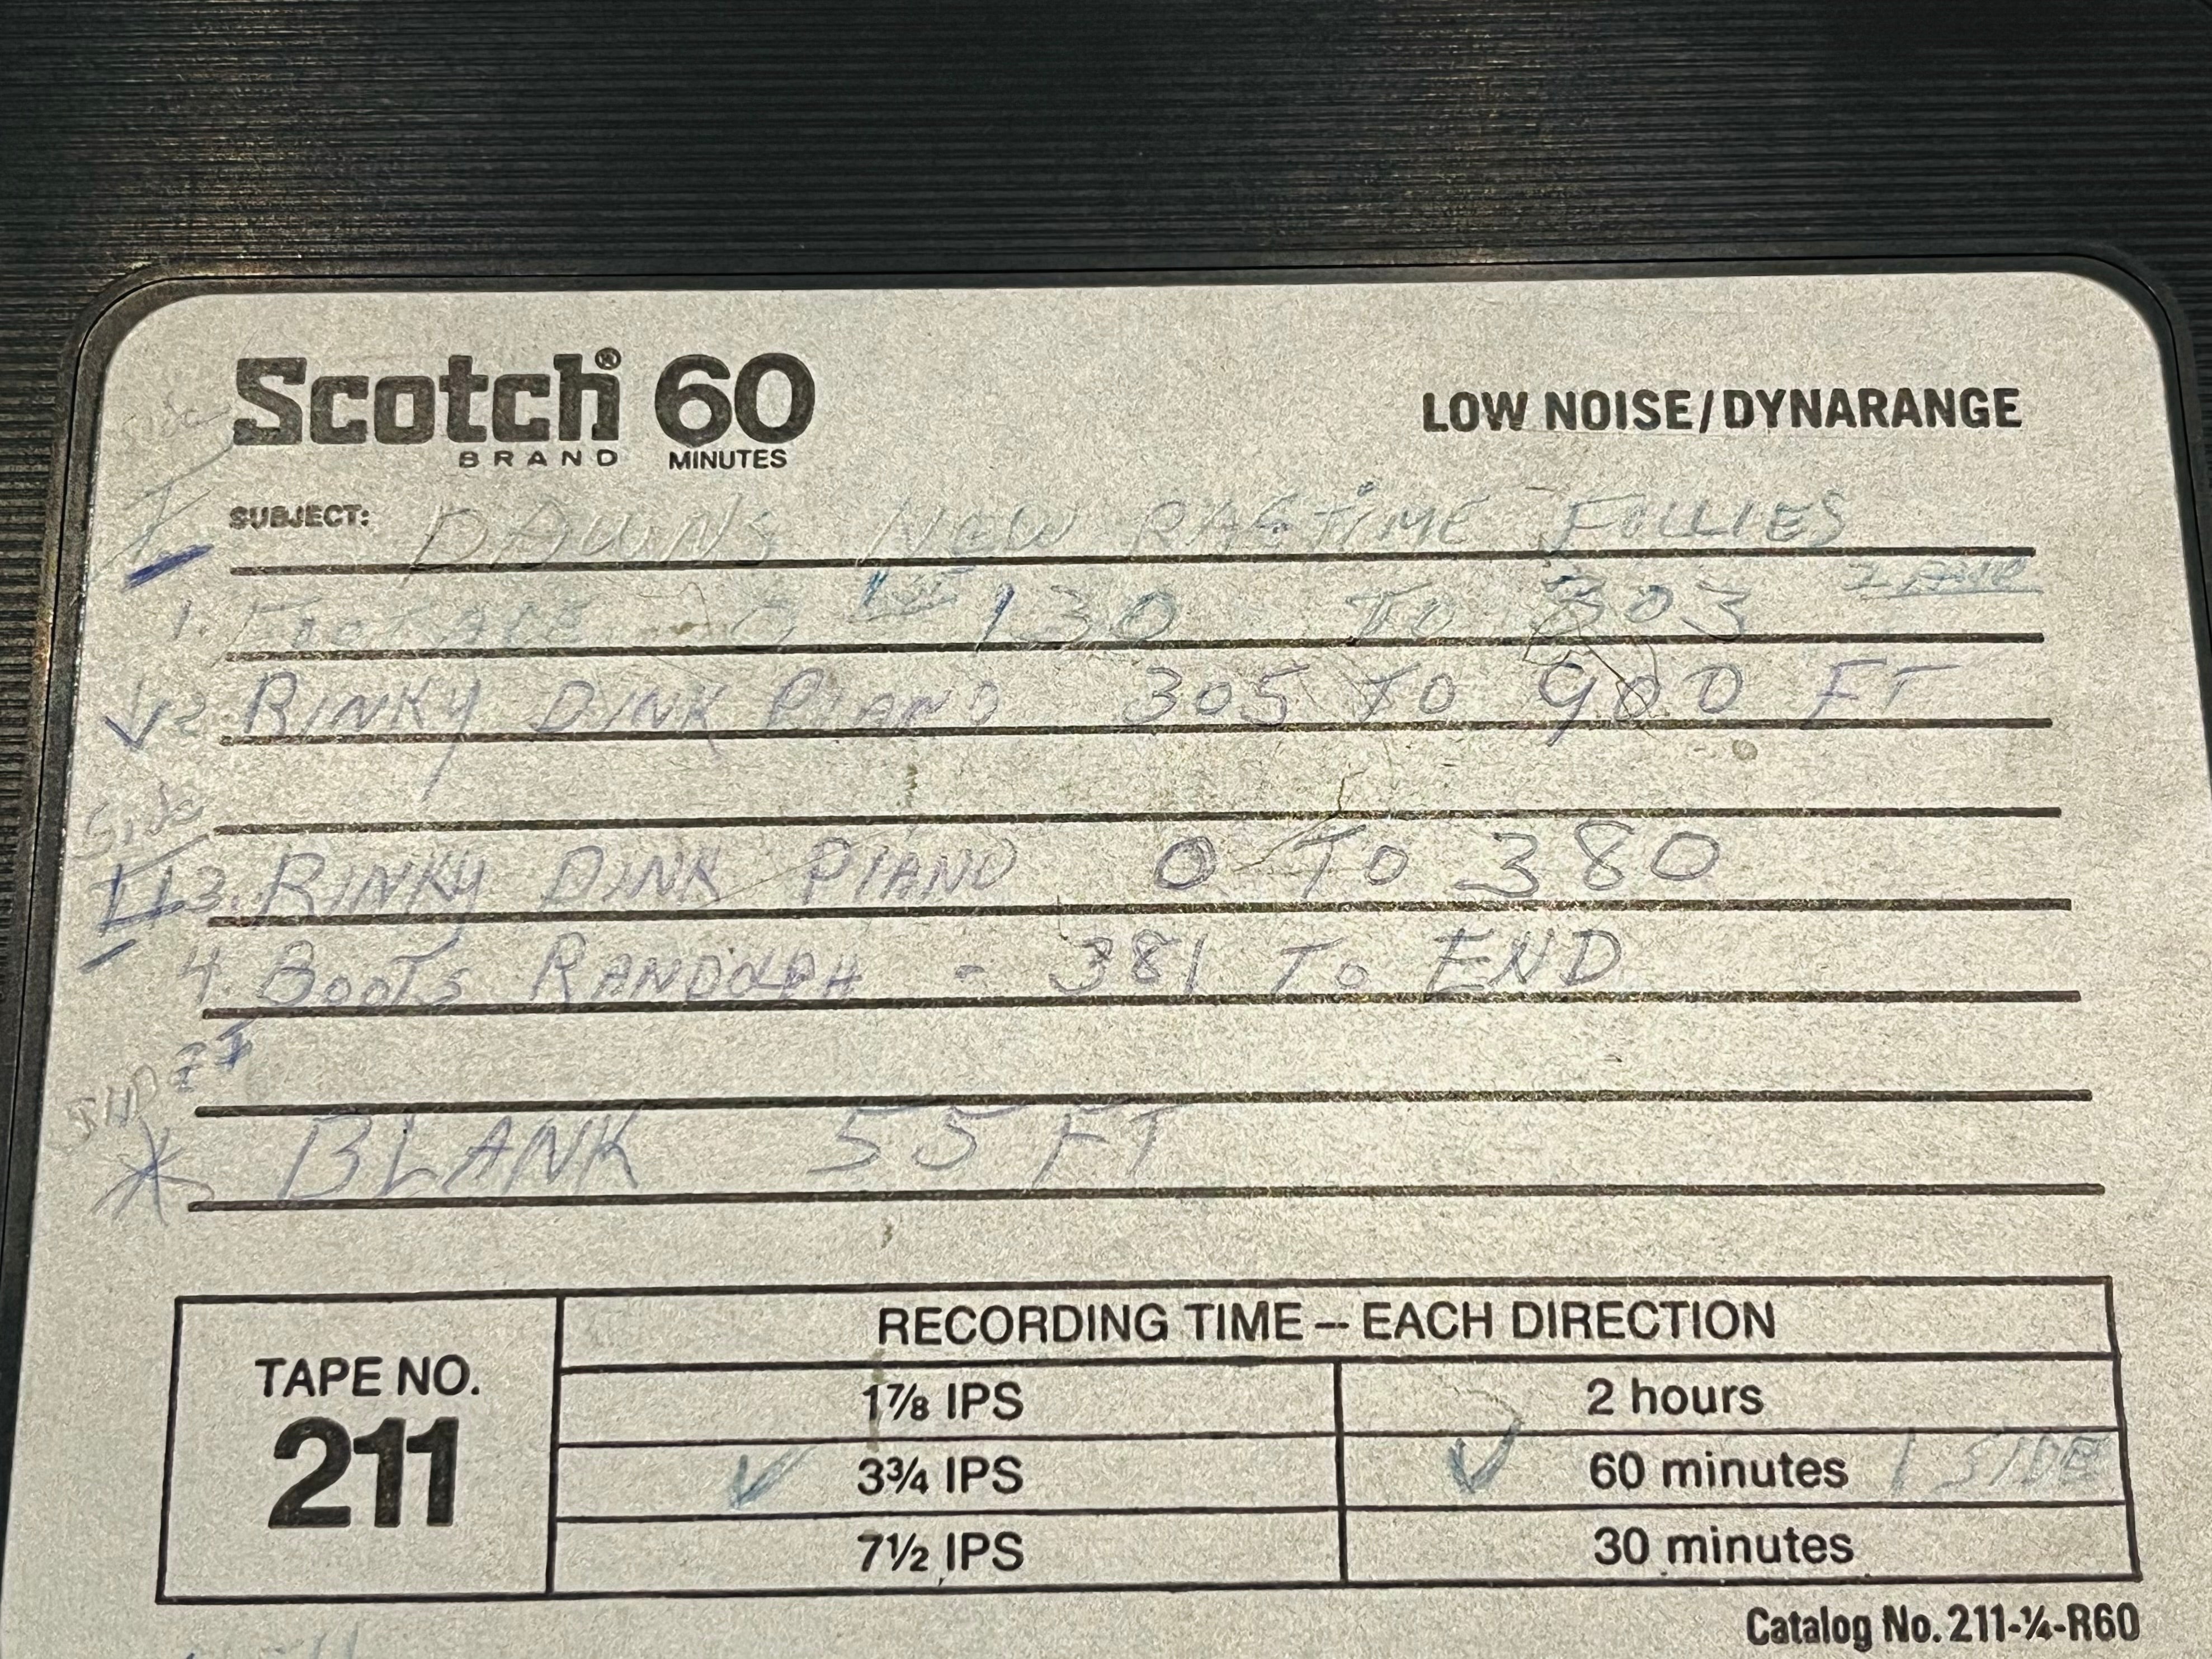 Scotch® 60
BRAND MINUTES
LOW NOISE/DYNARANGE
Side
I
SUBJECT: NEW RAGTIME FOLLIES
1. 130 TO 303
2. RINKY DINK PIANO 305 TO 900 FT
Side
II 3. RINKY DINK PIANO 0 TO 380
4. BOOTS RANDOLPH - 381 TO END
* BLANK 55 FT
TAPE NO.
211
RECORDING TIME – EACH DIRECTION
1⅞ IPS 2 hours
✓ 3¾ IPS ✓ 60 minutes 1 SIDE
7½ IPS 30 minutes
Catalog No. 211-¼-R60